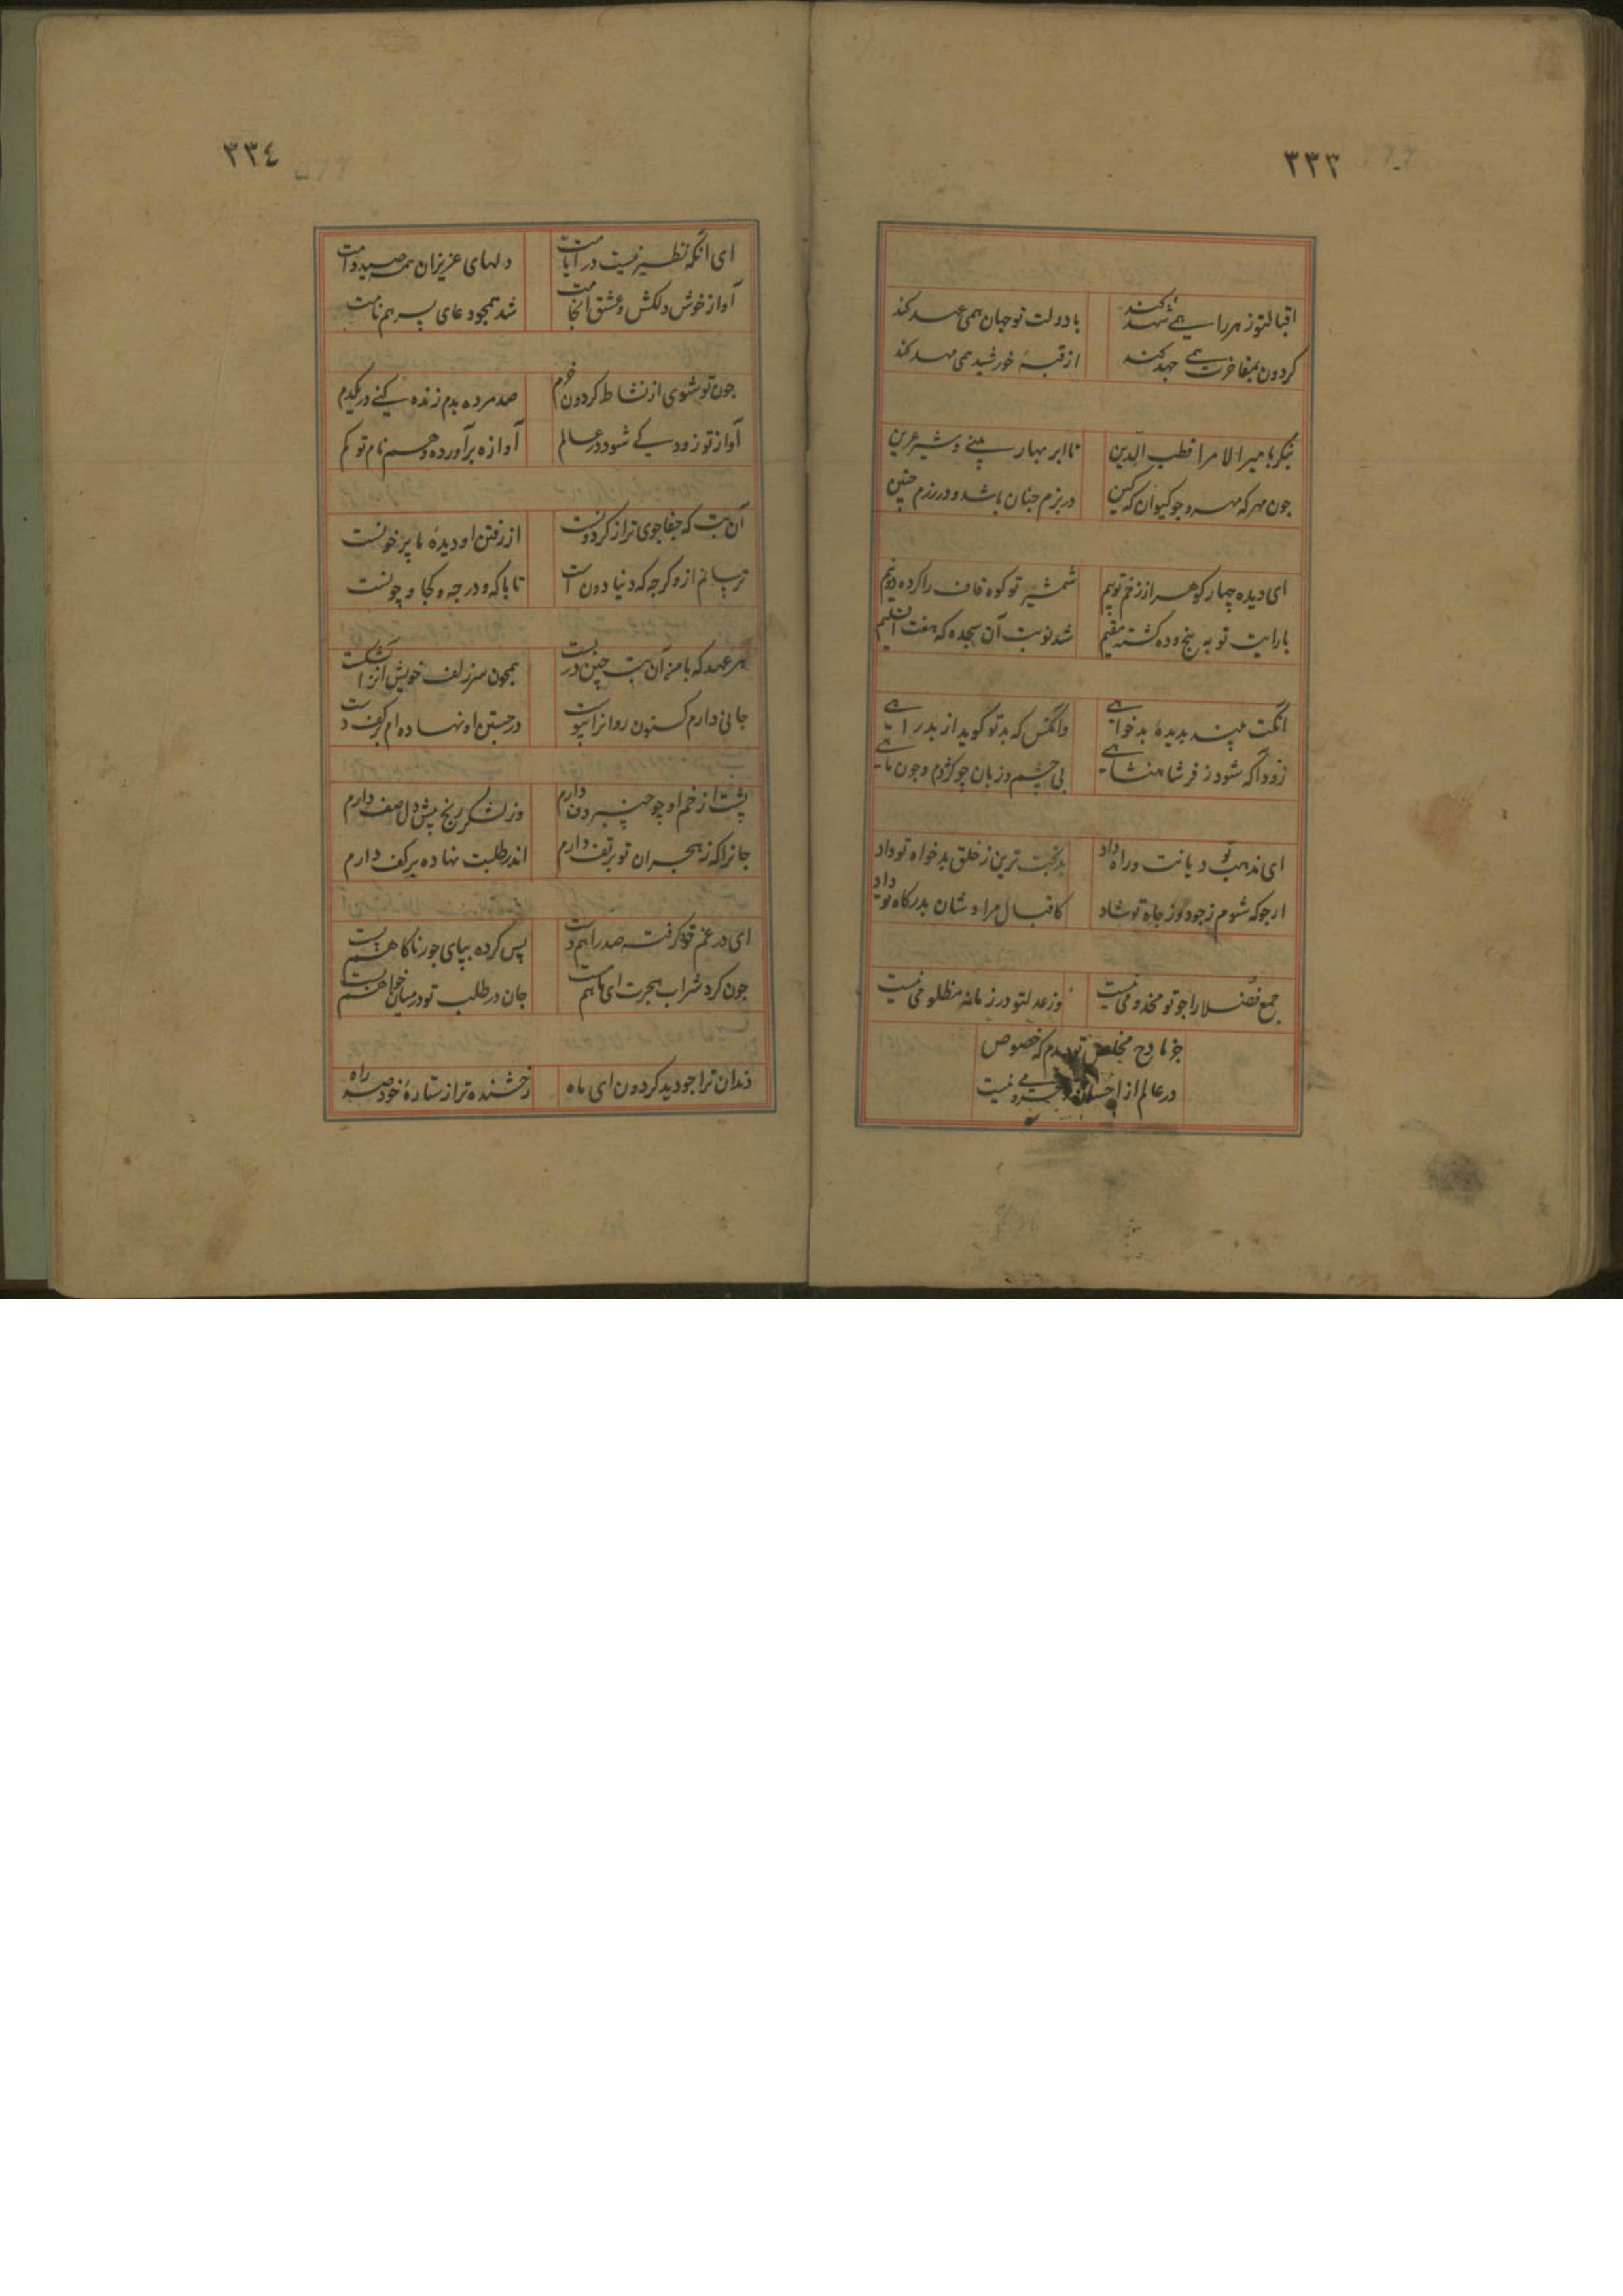 ۳۳۳
اقبالتو زهر را همی شهد کند با دولت تو جهان همی عهد کند
کردون بمفاخرت همی جهد کند از قبهٔ خورشید همی مهد کند
بنگر بامیر الامرا قطب الدین تا ابر بهار بینی و شیر عرین
جون مهر که مهر و جو کیوان که کین در بزم جنان باشد و در رزم چنین
ای دیده چهار کوهر از زخم تو بیم شمشیر تو کوه قاف را کرده دو نیم
با رایت تو به پنج و ده کشته مقیم شد نوبت آن سجده که هفت اقلیم
انکت نپسندد بدیدهٔ بدخواهی وانکس که بد تو کوید از بد راهی
زودا که شود ز فر شاهنشاهی بی چشم و زبان چو کژدم و جون ماهی
ای مذهب تو دیانت و راه تو داد بدبخت ترین ز خلق بدخواه تو داد
ارجو که شوم ز جود وز جاه تو شاد کاقبال مراد شان بدرکاه تو داد
جمع فضلا را جو تو مخدومی نیست وز عدلتو در زمانه مظلومی نیست
جز مادح مخلص ندیدم که خصوص
در عالم از احسان محرومی نیست
۳۳٤
ای آنکه نظیر نیست در ایامت دلهای عزیزان همه صید دامت
آواز خوش و دلکش و عشق انجامت شد همجو دعای پسر هم نامت
جون تو شوی از نشاط کردون خرم صد مرده بدم زنده کنی در یکدم
آواز تو زود کی شود در عالم آوازه برآورده و هم نام تو کم
آن بت که جفا جوی تر از کردونست از رفتن او دیدهٔ ما پر خونست
ترسانم ازو کرجه که دنیا دون است تا با که و در جه و کجا و چونست
هر عهد که با من آن بت چین دربست همجون سر زلف خویش آنرا بشکست
جانی دارم کنون روانرا پیوست در جستن او نهاده ام بر کف دست
پشت از خم او چو چنبر دف دارم وز لشکر رنج پیش دل صف دارم
جانرا که ز هجران تو بر تف دارم اندر طلبت نهاده بر کف دارم
ای در غم تو کرفته صد راهم دست پس کرده بپای جور ناکاهم پست
جون کرد شراب هجرت ای ماهم مست جان در طلب تو در میان خواهم بست
دندان ترا جو دید کردون ای ماه رخشنده تر از ستارهٔ خود صد راه